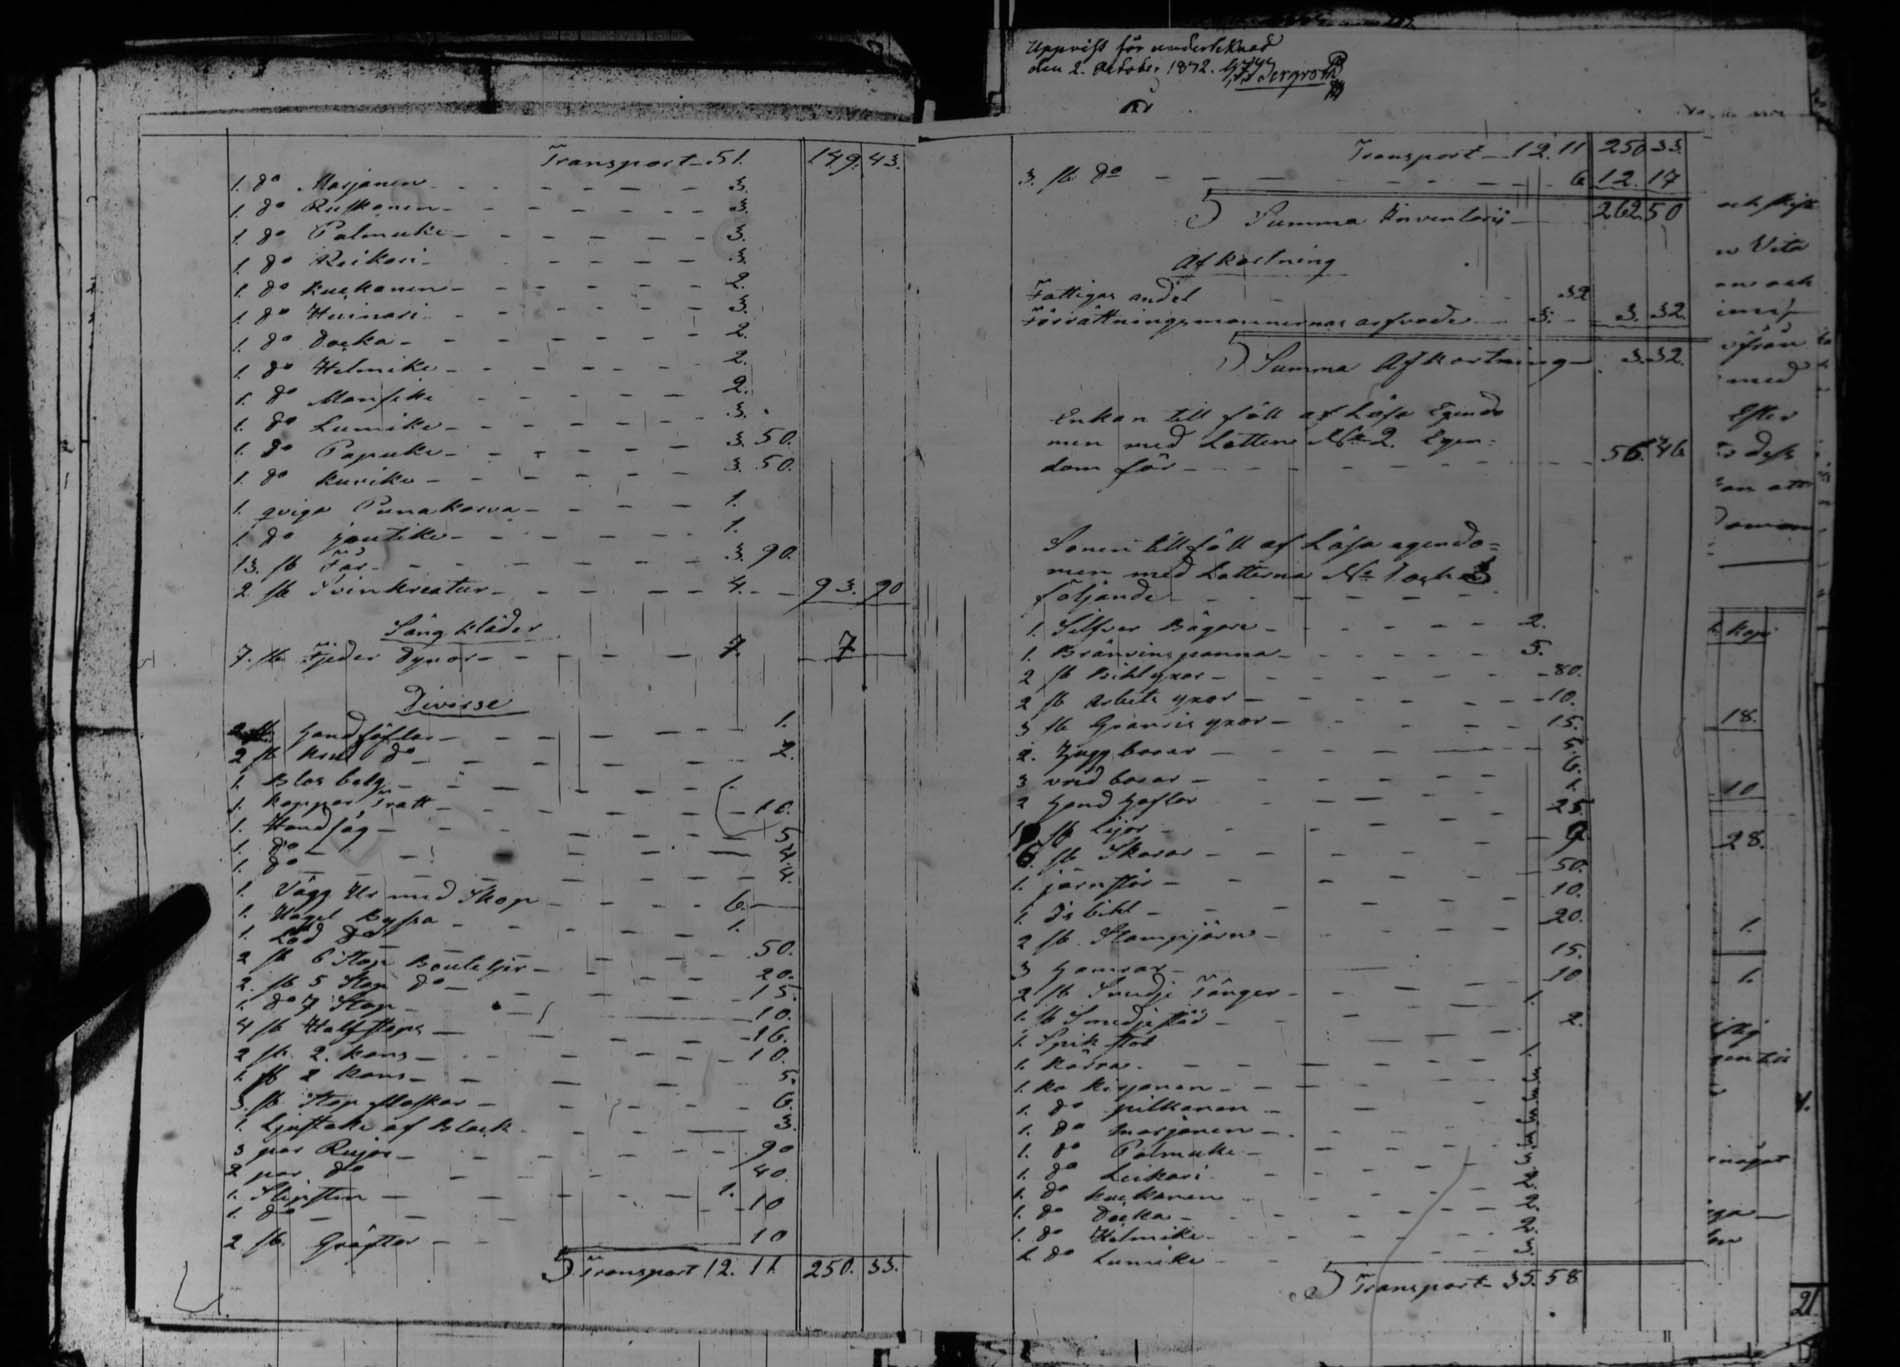 Transport 51. 149. 43.
1. do Marjanen 3.
1. do Ruskanen 3.
1. do Palmuke 3.
1. do Reikari 3.
1. do Kuckanen 2.
1. do Huinari 3.
1. do Docka 2.
1. do Helmike 2.
1. do Mansike 2.
1. do Lumike 3.
1. do Papuke 3. 50.
1. do Kurike 3. 50.
1. qviga Punakorva 1.
1. do joutike 1.
13. st Får 3. 90.
2. st Svinkreatur 4. 93. 90
Säng kläder
7. st Fjeder dynor 7. 7
Diverse
1.
2 st do 2.
1. Blås belg
1. koppar Tratt 10.
1. Handsåg 5
1. do 4.
1. do 4.
1. Vägg Ur med Skåp 6.
1. Hagel Byssa 1.
1. do
2 st 6 Stop Bouteljer 50.
2. st 5 Stop do 20.
1. do 7 Stop 15.
4 st Half stops 10.
2 st. 2. kans 16.
1. st 2 kans 10.
3. st Stop flaskor 5.
1. Ljustake af Bleck 6.
3 par Rujor 3. 90
2 par do 40.
1. Slipsten 1.
1. do 10
2 st. Gräftor 10
Transport 12. 11. 250. 33.
Uppvist för undertecknad
den 2. October 1872.
Transport 12. 11 250 33.
3. st do 6 12. 17
Summa Inventarii 262 50
Afkortning
Fattigas andel 32
Förrättningsmännernas arfvode 3. 3. 32.
Summa Afkortning 3. 32.
Enkan till föll af Lösa Egendo
men med Lotten No 2. Egen-
dom för 56. 46
Sonen tillföll af Lösa egendo=
men med Lotterna No 1 och 3
följande
1. Silfver Bägare 2.
1. Bränvins panna 5.
2 st Bihl yxor 80.
2 st Arbets yxor 10.
3 st yxor 15.
2. borar 5.
3 vrid borar 6.
2 1.
st Lijor 25
st Skäror 9
1. järnstör 50.
1. Is bihl 10.
2 st. Stampjärn 20.
3 Hamrar 15.
2 st Smedje Tänger 10
1. st Smedje städ 1.
1. Spik stol 2.
1. Kärra 1.
1. ko Kirjanen
1. do pilkanen
1. do marjanen
1. do Palmuke
1. do Leikari
1. do Kuckanen
1. do Docka
1. do Helmike
1. do Lumike
Transport 35. 58
med
Efter
18.
10
28.
1.
1.
21.